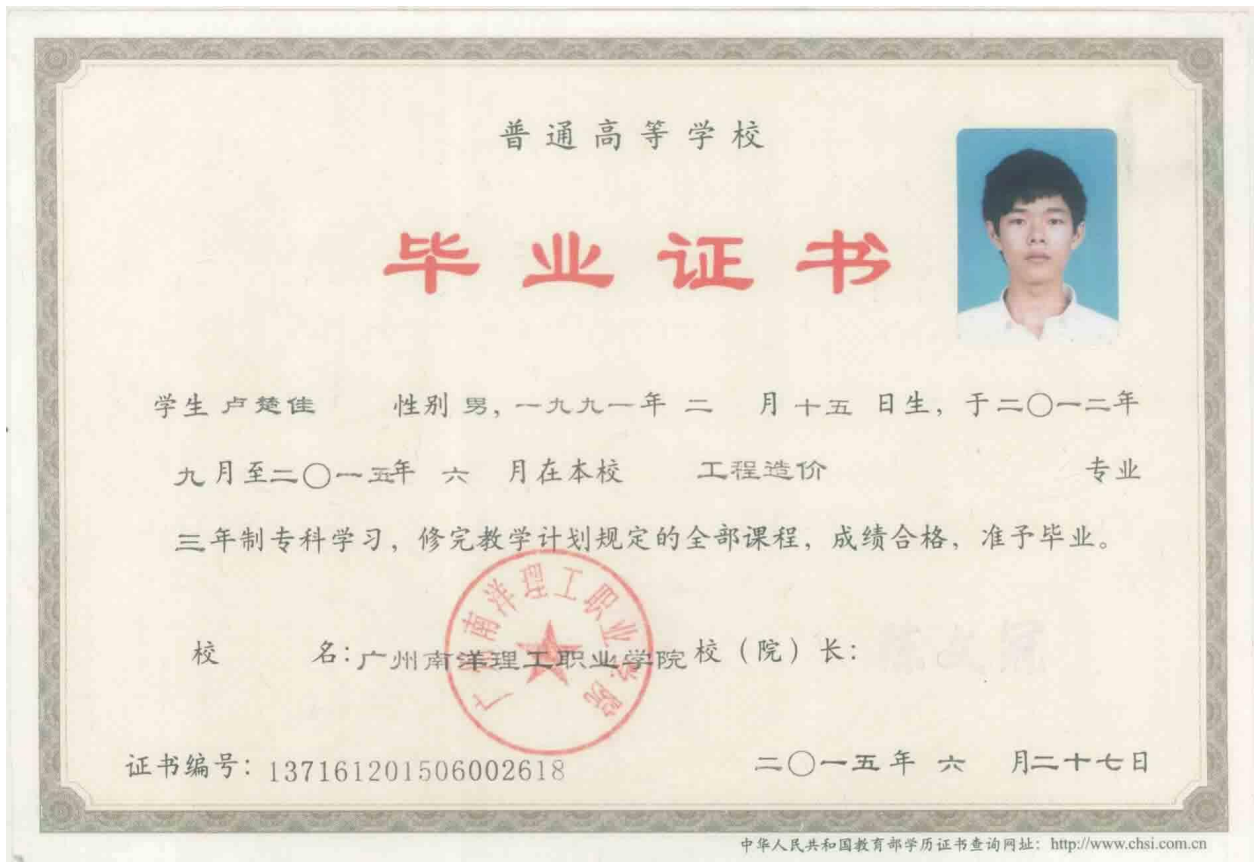 普通高等学校
毕业证书
学生 卢楚佳 性别 男, 一九九一年 二 月 十五 日生, 于二〇一二年
九月至二〇一五年 六 月在本校 工程造价 专业
三年制专科学习, 修完教学计划规定的全部课程, 成绩合格, 准予毕业。
广州南洋理工职业学院
校 名: 广州南洋理工职业学院 校（院）长:
证书编号: 137161201506002618 二〇一五年 六 月二十七日
中华人民共和国教育部学历证书查询网址: http://www.chsi.com.cn